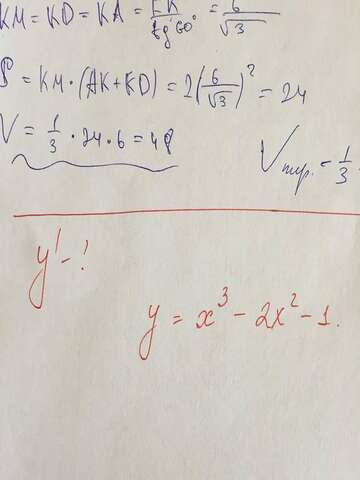 KM = KD = KA = EK / tg 60° = 6 / √3
S = KM · (AK + KD) = 2(6/√3)² = 24
V = 1/3 · 24 · 6 = 48
Vпир. = 1/3
y' - !
y = x³ - 2x² - 1.